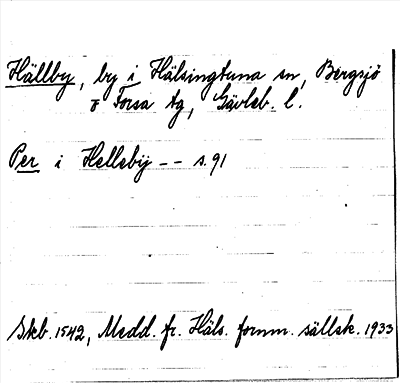 Hällby, by i Hälsingtuna sn, Bergsjö
o Forsa tg, Gävleb. l.
Per i Helleby -- s. 91
Skb. 1542, Medd. fr. Häls. fornm. sällsk. 1933